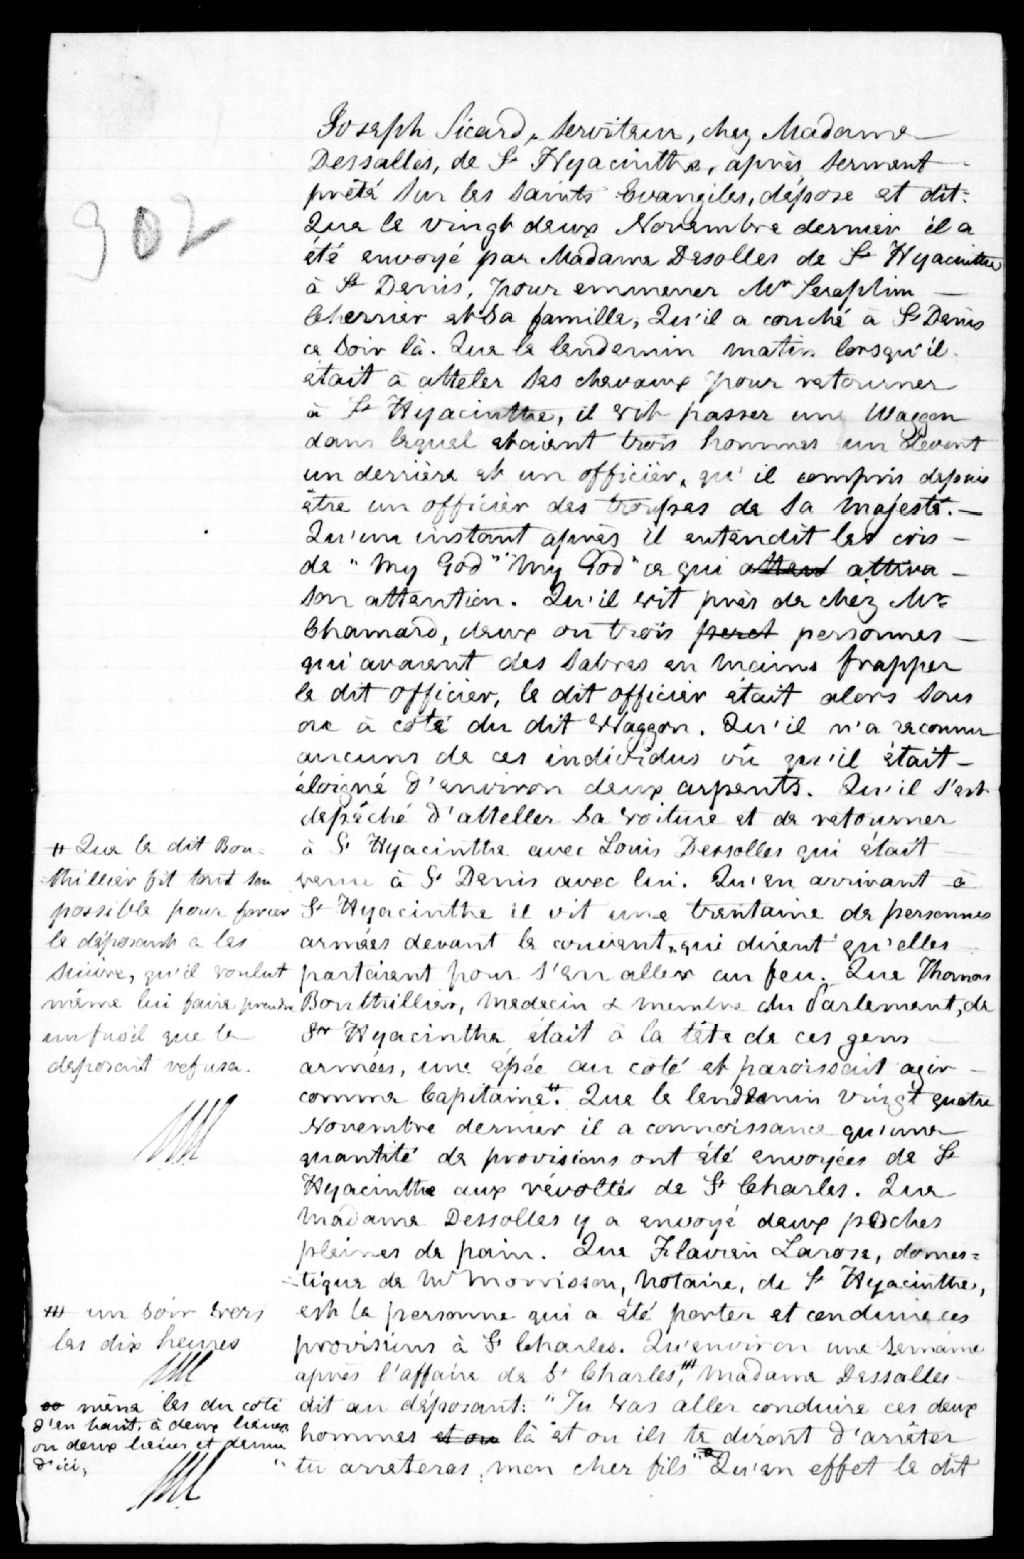 902
Joseph Sicard, serviteur, chez Madame
Dessalles, de St Hyacinthe, après serment
prêté sur les saints Evangiles, dépose et dit:
Que le vingt deux Novembre dernier il a
été envoyé par Madame Desolles de St Hyacinthe
à St Denis, pour emmener Mr Seraphim
Cherrier et sa famille, Qu'il a couché à St Denis
ce soir là. Que le lendemin matin lorsqu'il
était à atteler ses chevaux pour retourner
à St Hyacinthe, il vit passer une Waggon
dans lequel etaient trois hommes un devent
un derrière et un officièr, qu'il compris depuis
être un officièr des troupes de sa majesté.—
Qu'un instant après il entendit les cris—
de "My God" "My God" ce qui attend attira—
son attention. Qu'il vit près de chez Mr
Chamard, deux ou trois perct personnes—
qui avaient des sabres en mains frapper
le dit officier, le dit officier était alors sous
ou à côté du dit Waggon. Qu'il n'a reconnu
aucuns de ces individus vû qu'il était—
éloigné d'environ deux arpents. Qu'il s'est
depêché d'atteller sa voiture et de retourner
à St Hyacinthe avec Louis Dessolles qui était
venu à St Denis avec lui. Qu'en arrivant à
St Hyacinthe il vit une trentaine de personnes
armées devant le couvent, qui dirent qu'elles
partaient pour s'en aller au feu. Que Thomas
Bouthillier, Medecin & membre du Parlement, de
St Hyacinthe était à la tête de ces gens
armées, une épée au coté et paroissait agir—
comme Capitaine ++. Que le lendemin vingt quatre
Novembre dernier il a connoissance qu'une
quantité de provisions ont été envoyées de St
Hyacinthe aux révoltés de St Charles. Que
Madame Dessolles y a envoyé deux poches
pleines de pain. Que Flavien Larose, domes=
tique de Mr Morrisson, Notaire, de St Hyacinthe,
est la personne qui a été porter et conduire ces
provisions à St Charles. Qu'environ une semaine
après l'affaire de St Charles, +++ Madame Dessalles
dit au déposant: "Tu vas aller conduire ces deux
hommes et ou là et ou ils te diront d'arrêter
tu arreteras, mon cher fils" Qu'en effet le dit
++ Que le dit Bou-
thillier fit tout son
possible pour forcer
le déposant a les
suivre, qu'il voulut
même lui faire prendre
un fusil que le
deposant refusa.
+++ un soir vers
les dix heures
même les du coté
d'en haut, à deux lieues
ou deux lieues et demie
d'ici,